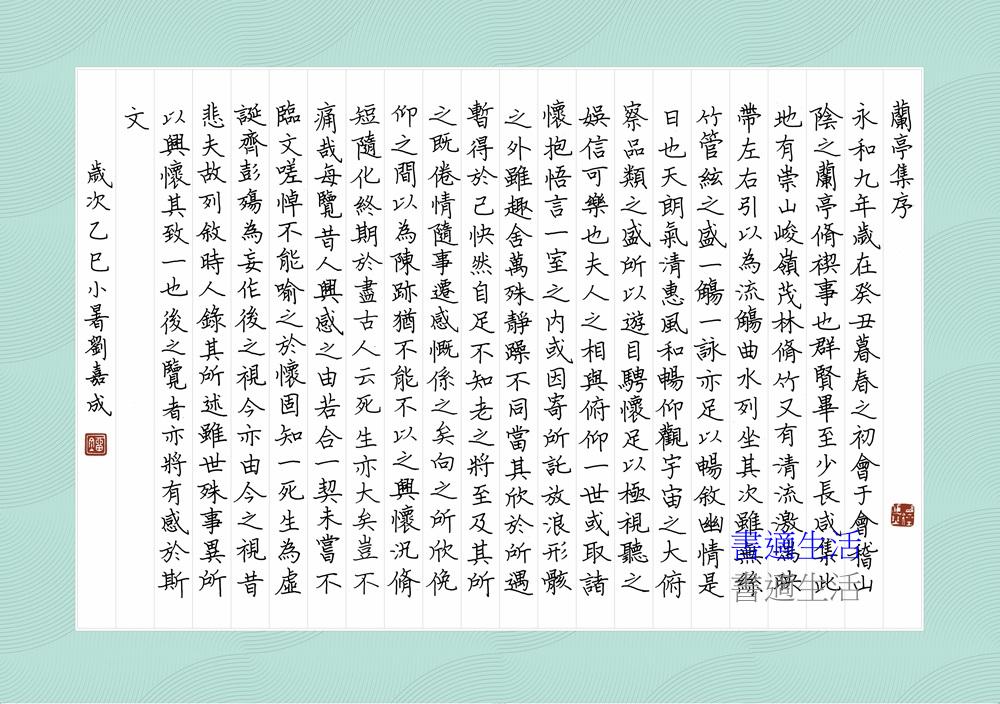 蘭亭集序
永和九年歲在癸丑暮春之初會于會稽山
陰之蘭亭脩禊事也群賢畢至少長咸集此
地有崇山峻嶺茂林脩竹又有清流激湍映
帶左右引以為流觴曲水列坐其次雖無絲
竹管絃之盛一觴一詠亦足以暢敘幽情是
日也天朗氣清惠風和暢仰觀宇宙之大俯
察品類之盛所以遊目騁懷足以極視聽之
娛信可樂也夫人之相與俯仰一世或取諸
懷抱悟言一室之內或因寄所託放浪形骸
之外雖趣舍萬殊靜躁不同當其欣於所遇
暫得於己快然自足不知老之將至及其所
之既倦情隨事遷感慨係之矣向之所欣俛
仰之間以為陳跡猶不能不以之興懷況脩
短隨化終期於盡古人云死生亦大矣豈不
痛哉每覽昔人興感之由若合一契未嘗不
臨文嗟悼不能喻之於懷固知一死生為虛
誕齊彭殤為妄作後之視今亦由今之視昔
悲夫故列敘時人錄其所述雖世殊事異所
以興懷其致一也後之覽者亦將有感於斯
文
歲次乙巳小暑劉嘉成
書適生活
書適生活